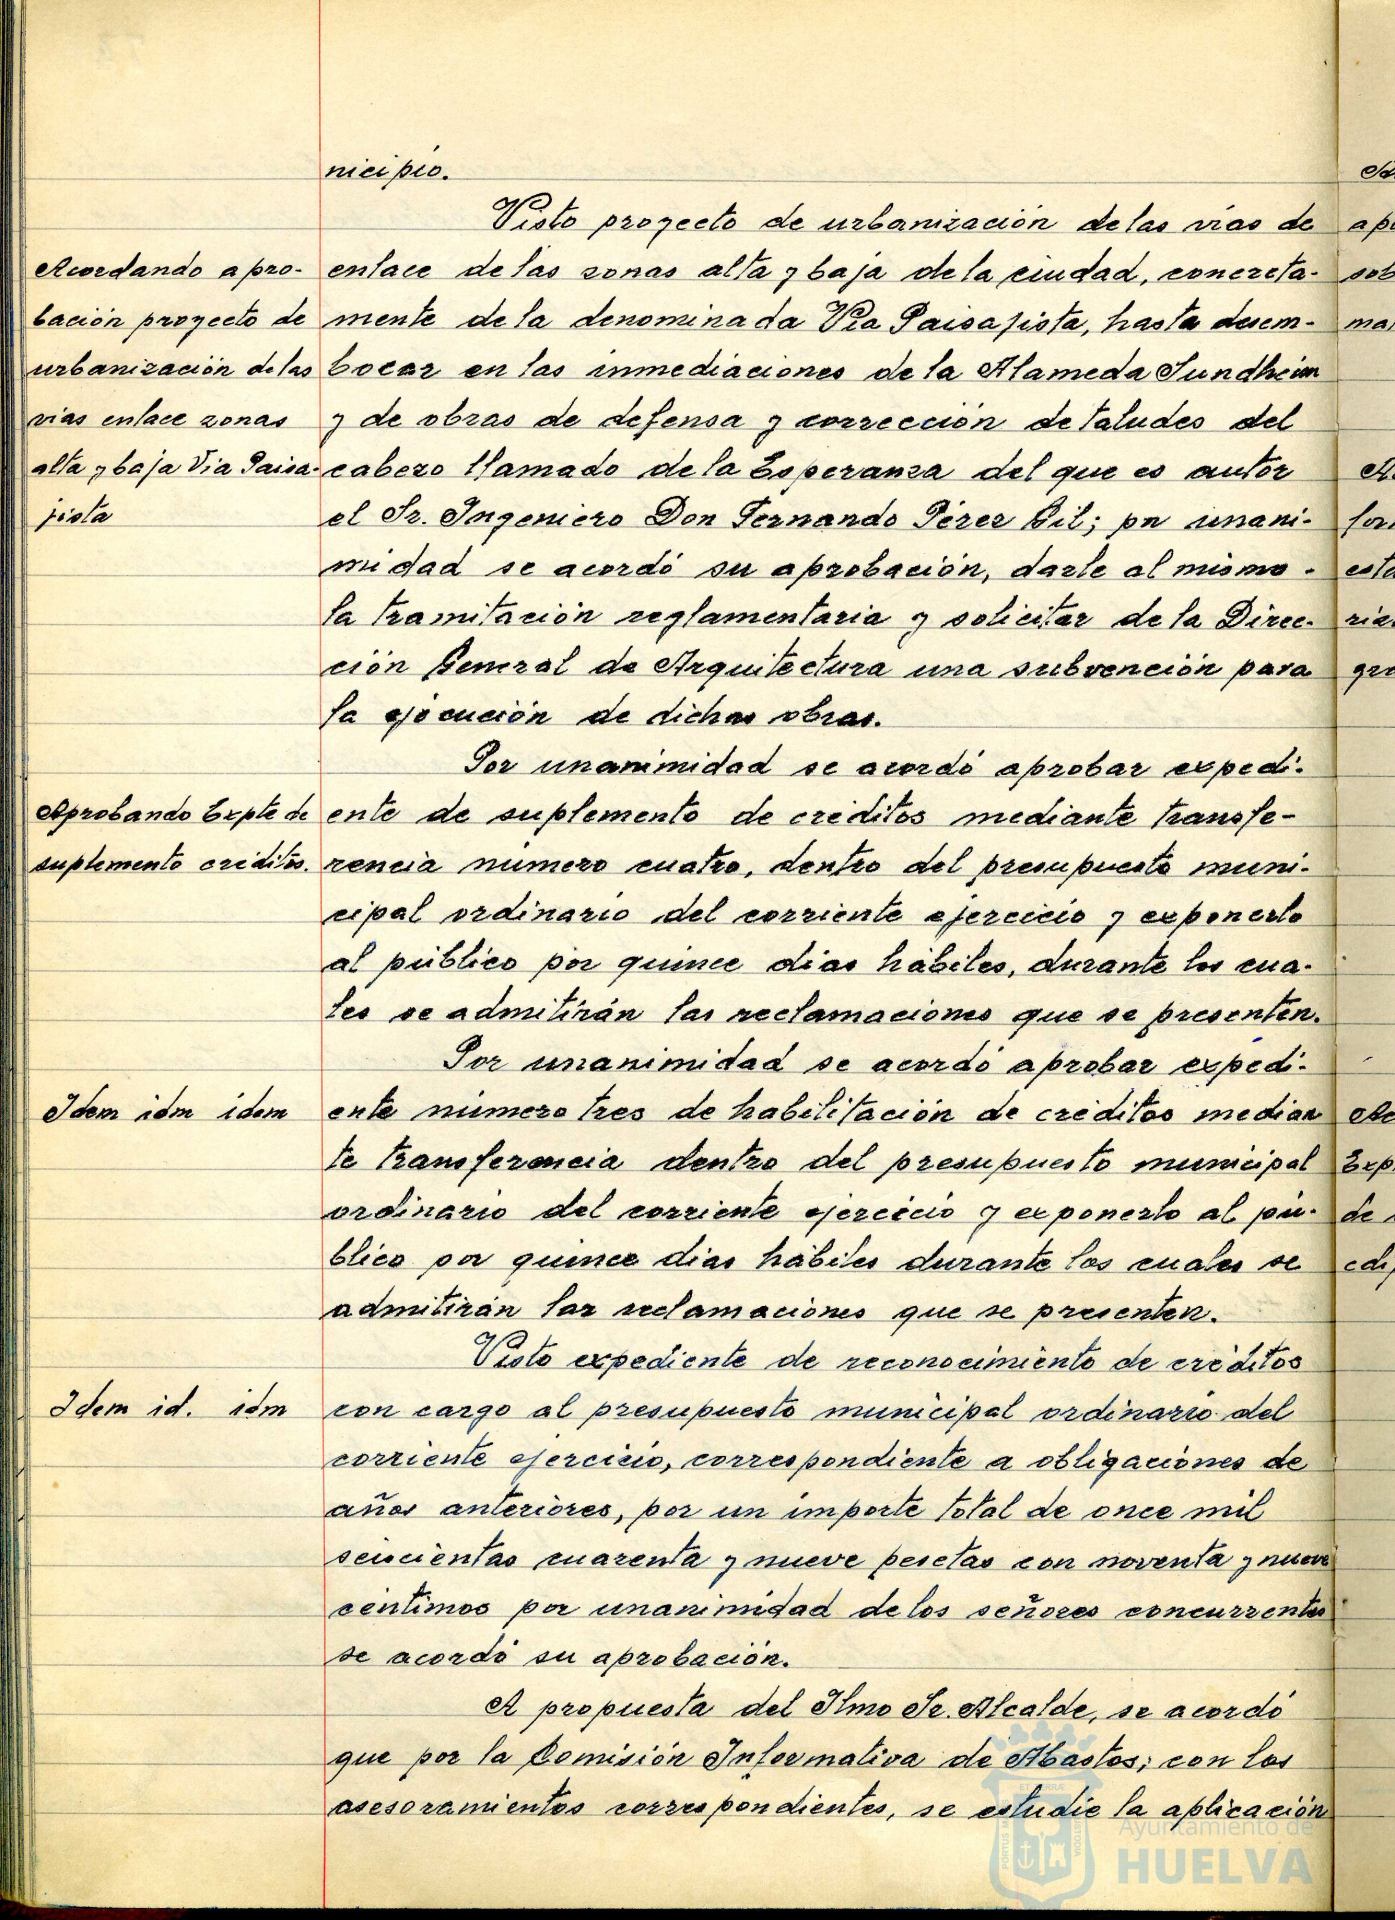 nicipio.
Visto proyecto de urbanización de las vías de
Acordando apro-
enlace de las zonas alta y baja de la ciudad, concreta-
bación proyecto de
mente de la denominada Vía Paisajista, hasta desem-
urbanización de las
bocar en las inmediaciones de la Alameda Sundheim
vias enlace zonas
y de obras de defensa y corrección de taludes del
alta y baja Via Paisa-
cabezo llamado de la Esperanza del que es autor
jista
el Sr. Ingeniero Don Fernando Pérez Gil; pn unani-
midad se acordó su aprobación, darle al mismo -
la tramitación reglamentaria y solicitar de la Direc-
ción General de Arquitectura una subvención para
la ejecución de dichas obras.
Por unanimidad se acordó aprobar expedi-
Aprobando Expte de
ente de suplemento de créditos mediante transfe-
suplemento créditos.
rencia número cuatro, dentro del presupuesto muni-
cipal ordinario del corriente ejercicio y exponerlo
al público por quince días hábiles, durante los cua-
les se admitirán las reclamaciones que se presenten.
Por unanimidad se acordó aprobar expedi-
Idem idm idem
ente número tres de habilitación de créditos median
te transferencia dentro del presupuesto municipal
ordinario del corriente ejercicio y exponerlo al pú-
blico por quince días hábiles durante los cuales se
admitirán las reclamaciones que se presenten.
Visto expediente de reconocimiento de créditos
Idem id. idm
con cargo al presupuesto municipal ordinario del
corriente ejercicio, correspondiente a obligaciones de
años anteriores, por un importe total de once mil
seiscientas cuarenta y nueve pesetas con noventa y nueve
céntimos por unanimidad de los señores concurrentes
se acordó su aprobación.
A propuesta del Ilmo Sr. Alcalde, se acordó
que por la Comisión Informativa de Abastos; con los
asesoramientos correspondientes, se estudie la aplicación
Ayuntamiento de
HUELVA